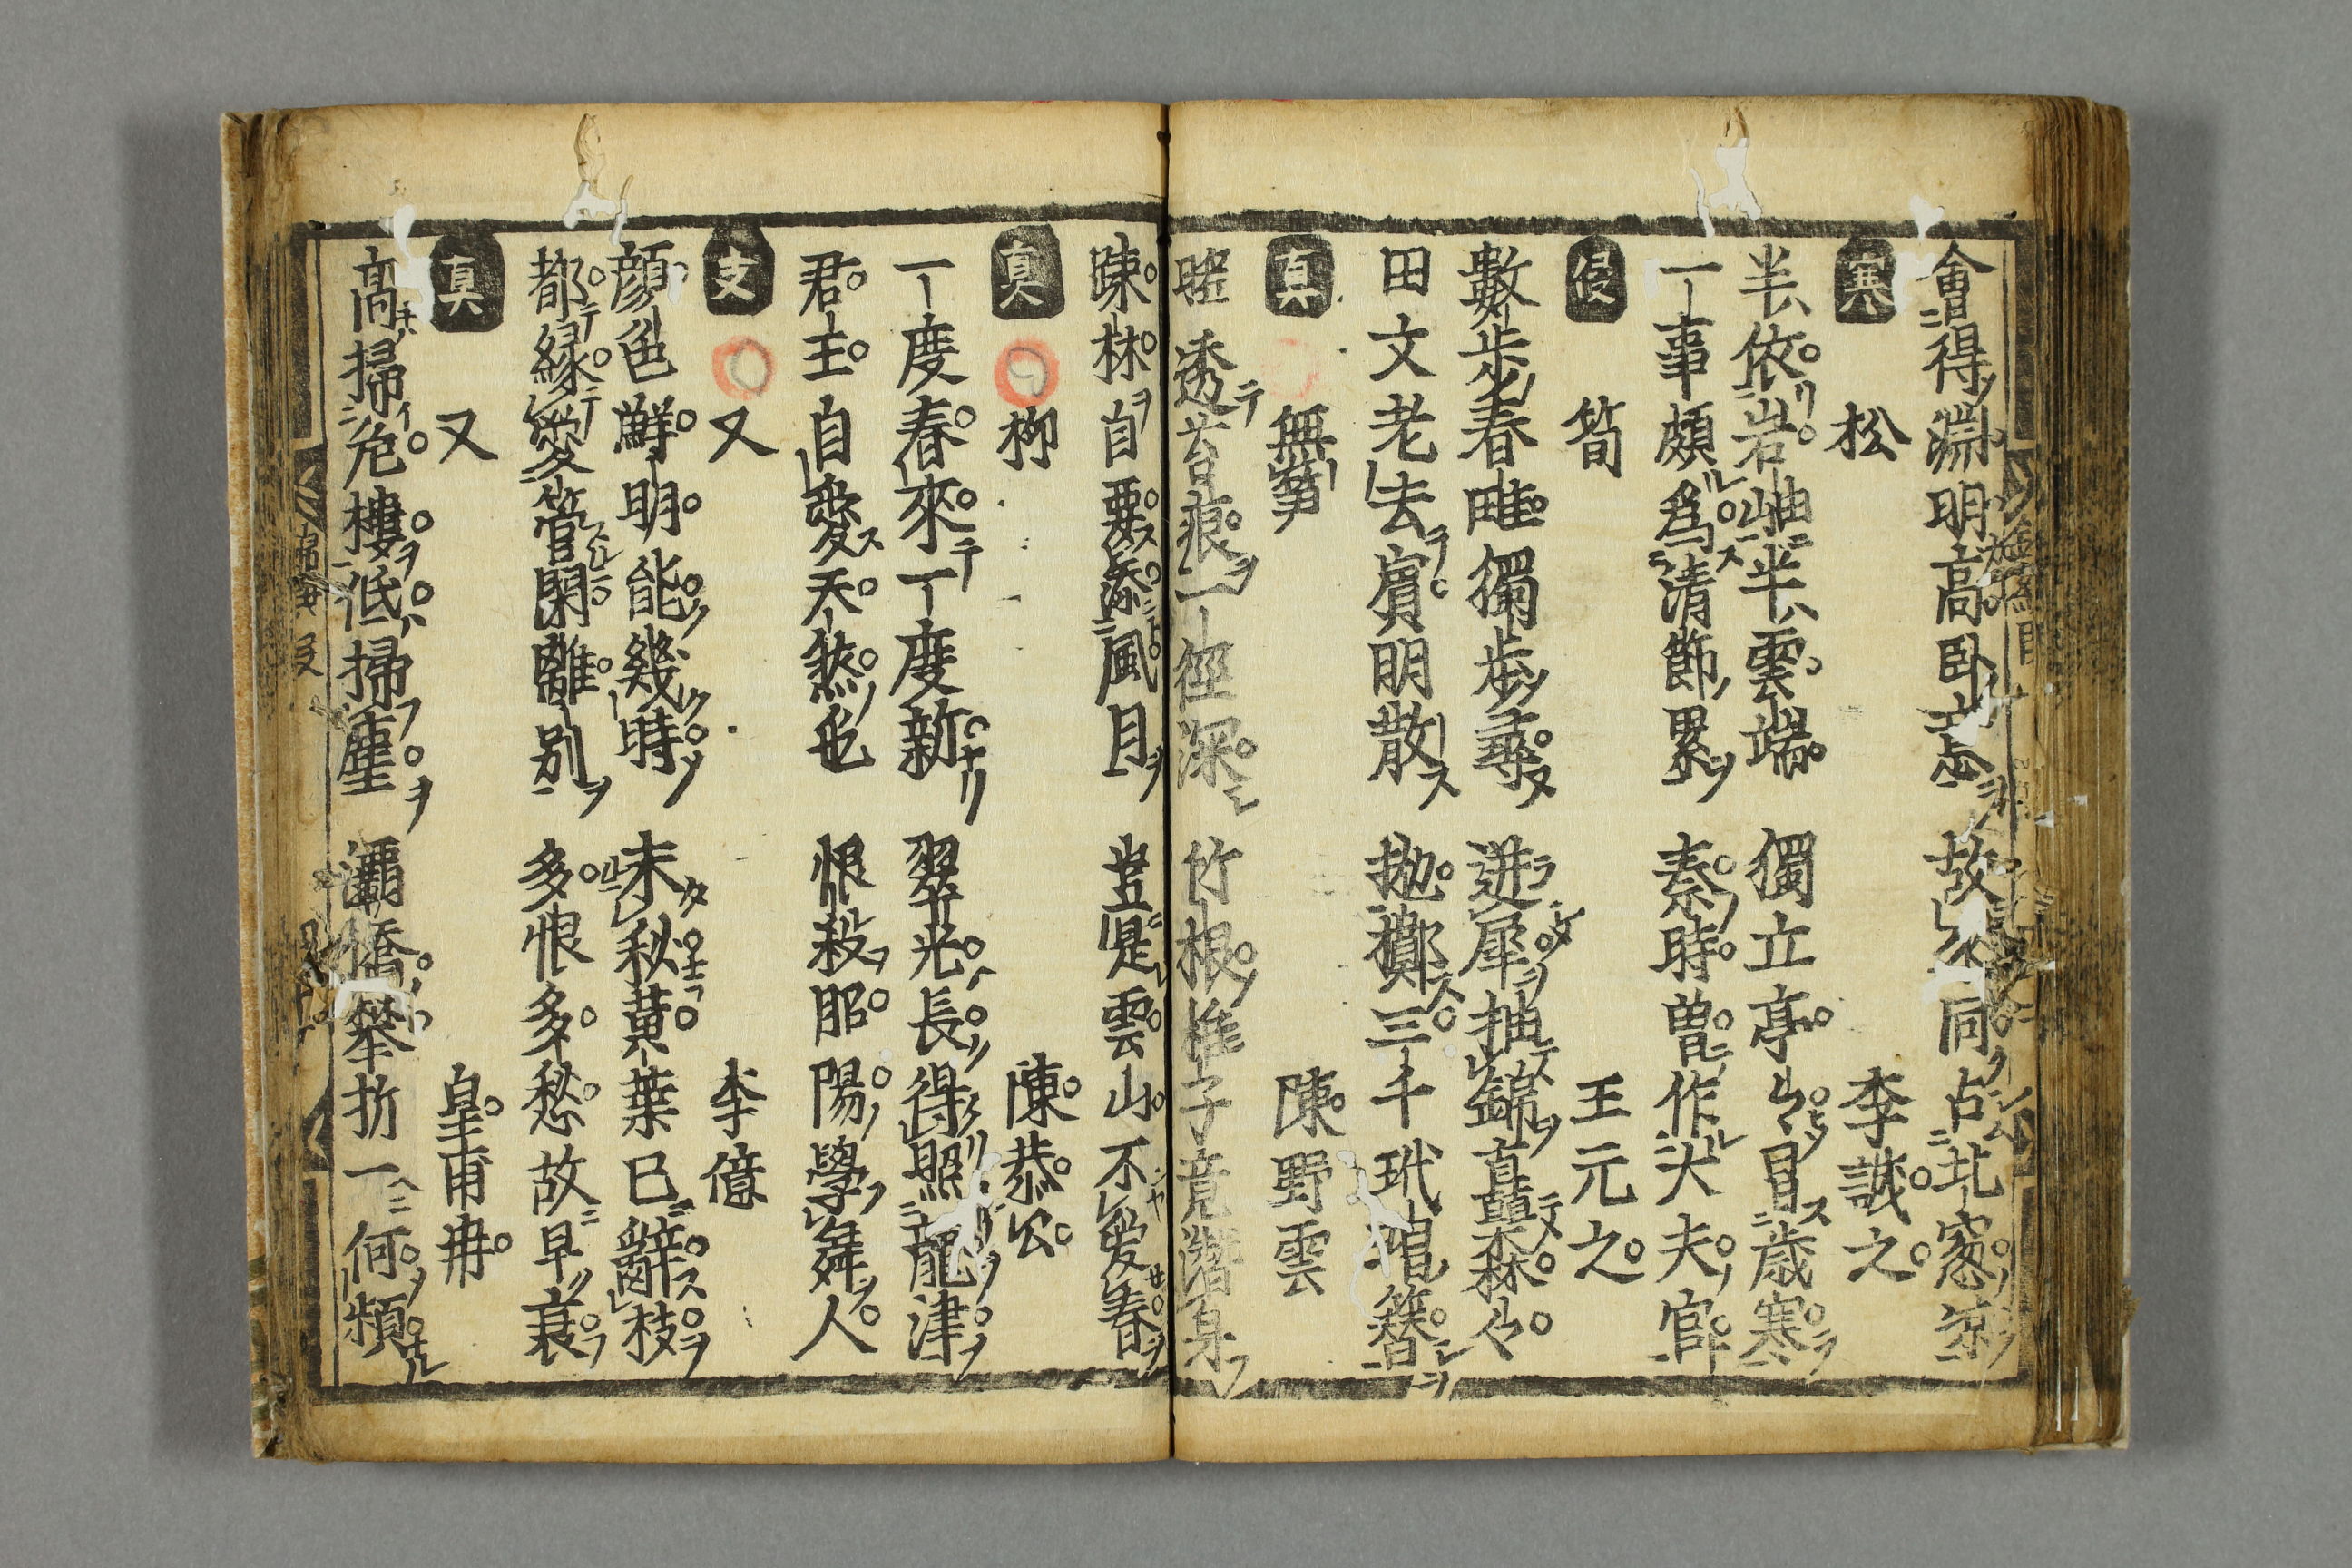 會得淵明高臥
故
同占北窓涼
寒 松 李誠之
半依岩岫半雲端 獨立亭々冒歳寒
一事頗爲清節累 秦時曽作大夫官
侵 筍 王元之
數歩春畦獨歩尋 迸犀抽錦直森々
田文老去賓明散 抛擲三千玳瑁簪
真 無𡖖 陳野雲
透苔痕一徑深 竹根稚子竟潛身
踈林自要添風月 豈是雲山不愛春
真 柳 陳恭公
一度春來一度新 翠光長得照龍津
君王自愛天然色 恨殺昭陽學舞人
支 又 李億
顔色鮮明能幾時 未秋黄葉已辭枝
都縁愛管閑離別 多恨多愁故早衰
真 又 皇甫冉
高掃危樓低掃塵 灞橋攀折一何頻